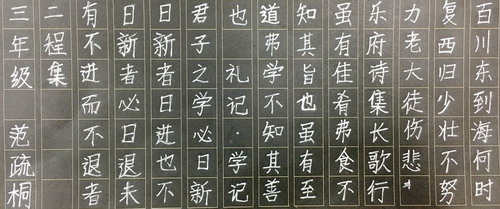 百川东到海何时
复西归少壮不努
力老大徒伤悲
乐府诗集长歌行
虽有佳肴弗食不
知其旨也虽有至
道弗学不知其善
也 礼记·学记
君子之学必日新
日新者日进也不
日新者必日退未
有不进而不退者
二程集
三年级 范疏桐